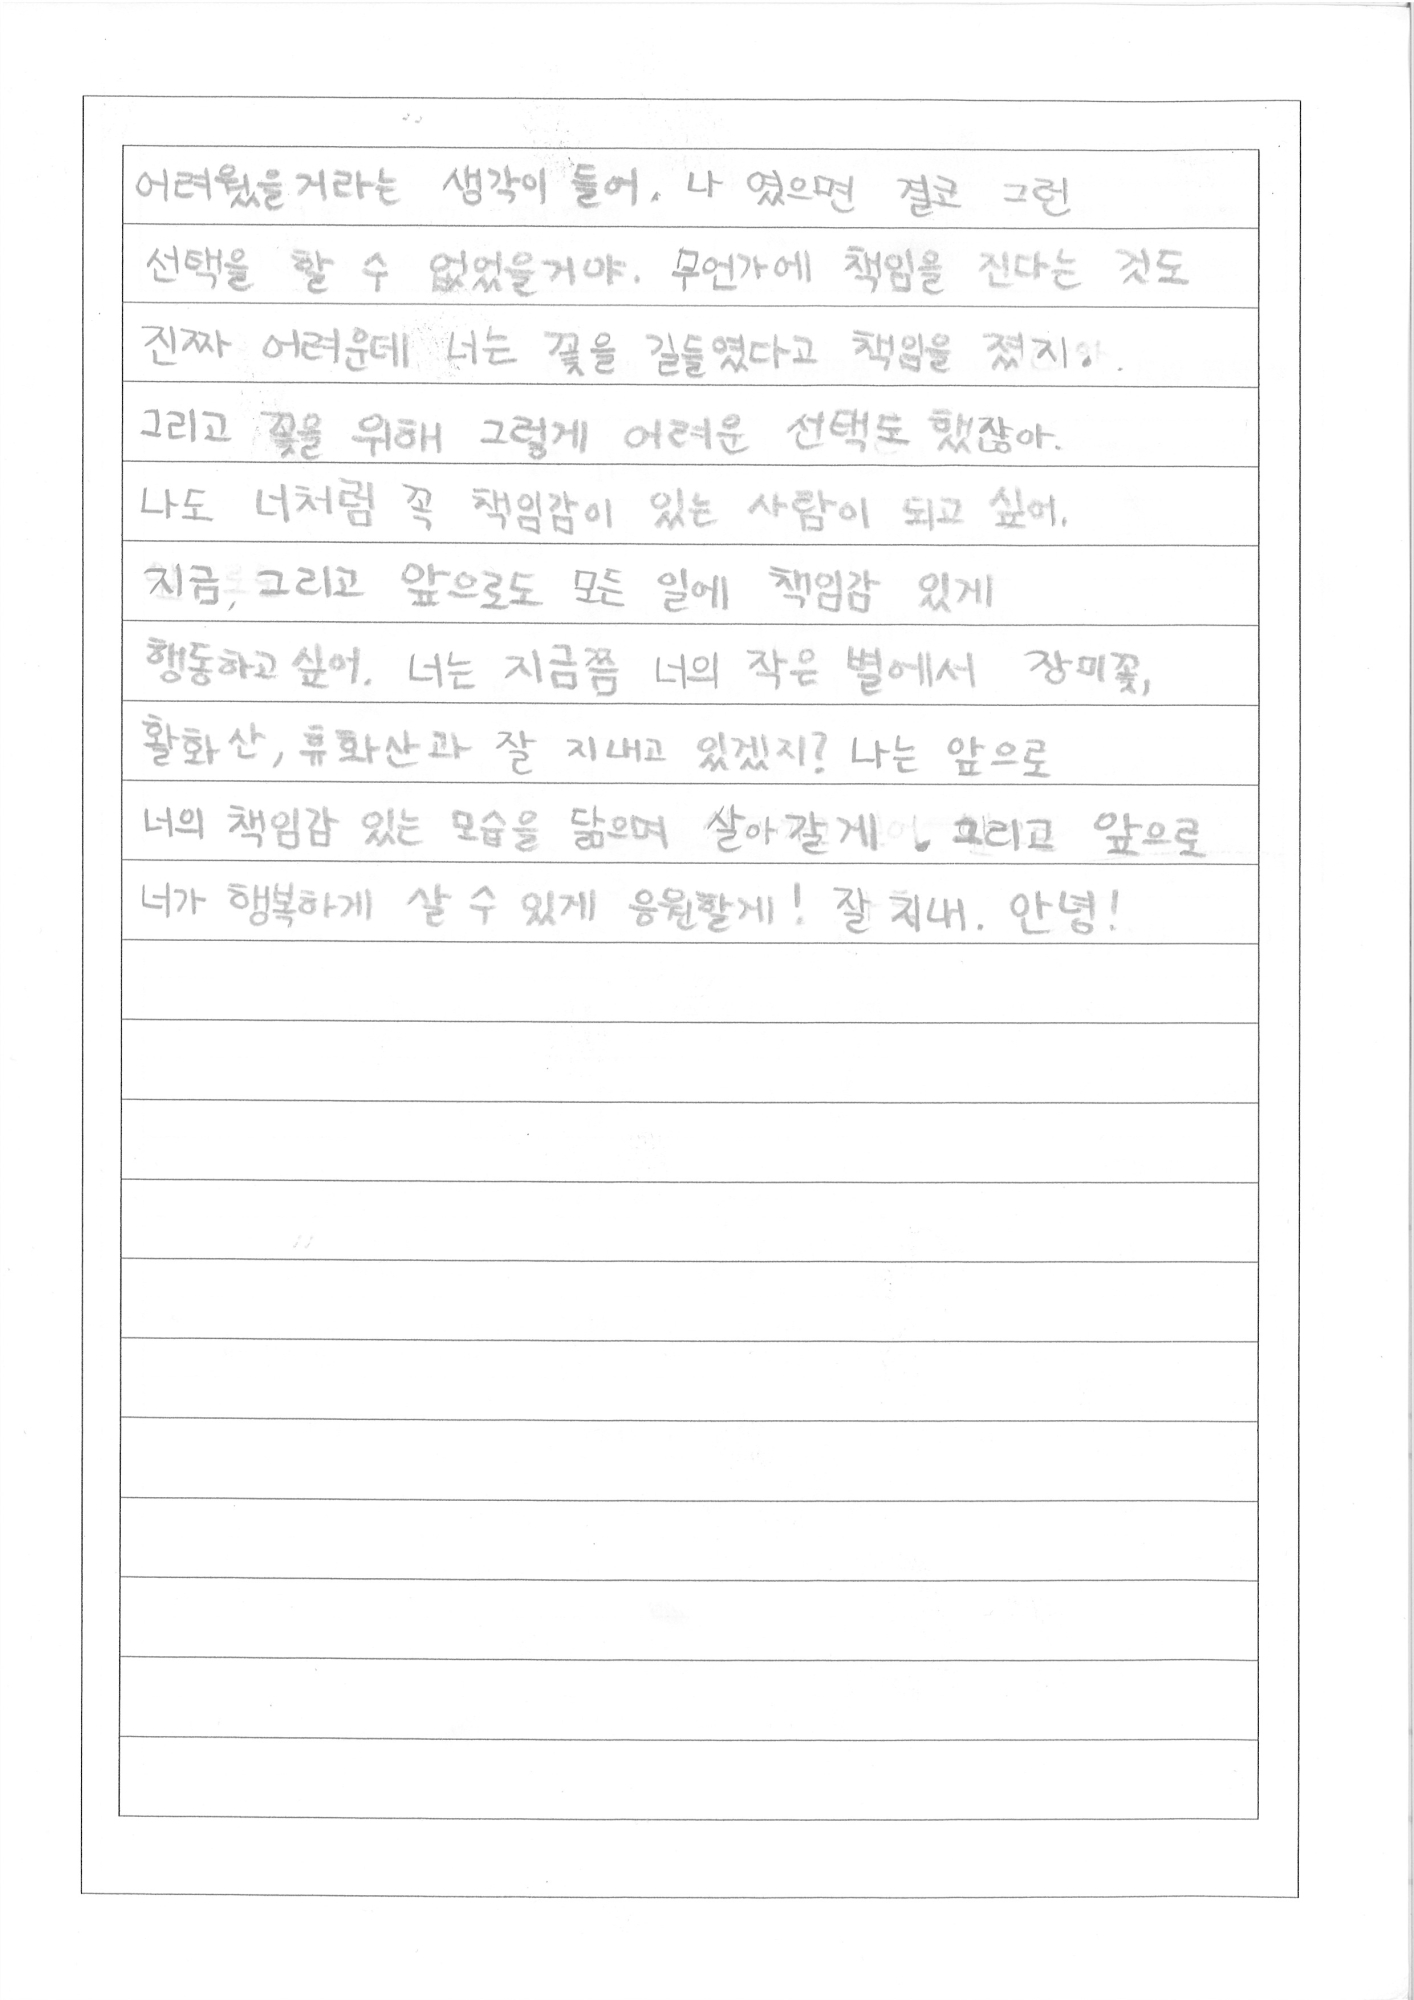 어려웠을거라는 생각이 들어. 나 였으면 결코 그런
선택을 할 수 없었을거야. 무언가에 책임을 진다는 것도
진짜 어려운데 너는 꽃을 길들였다고 책임을 졌지.
그리고 꽃을 위해 그렇게 어려운 선택도 했잖아.
나도 너처럼 꼭 책임감이 있는 사람이 되고 싶어.
지금, 그리고 앞으로도 모든 일에 책임감 있게
행동하고 싶어. 너는 지금쯤 너의 작은 별에서 장미꽃,
활화산, 휴화산과 잘 지내고 있겠지? 나는 앞으로
너의 책임감 있는 모습을 닮으며 살아갈게. 그리고 앞으로
너가 행복하게 살 수 있게 응원할게! 잘 지내. 안녕!